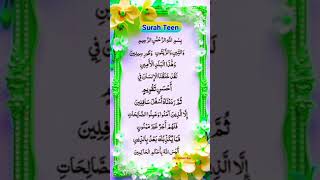 Surah Teen
بِسْمِ اللهِ الرَّحْمٰنِ الرَّحِيْمِ
وَالتِّيْنِ وَالزَّيْتُوْنِ وَطُوْرِ سِيْنِيْنَ
وَهٰذَا الْبَلَدِ الْاَمِيْنِ
لَقَدْ خَلَقْنَا الْاِنْسَانَ فِيْ
اَحْسَنِ تَقْوِيْمٍ
ثُمَّ رَدَدْنَاهُ اَسْفَلَ سَافِلِيْنَ
اِلَّا الَّذِيْنَ اٰمَنُوْا وَعَمِلُوا الصَّالِحَاتِ
فَلَهُمْ اَجْرٌ غَيْرُ مَمْنُوْنٍ
فَمَا يُكَذِّبُكَ بَعْدُ بِالدِّيْنِ
اَلَيْسَ اللهُ بِاَحْكَمِ الْحَاكِمِيْنَ